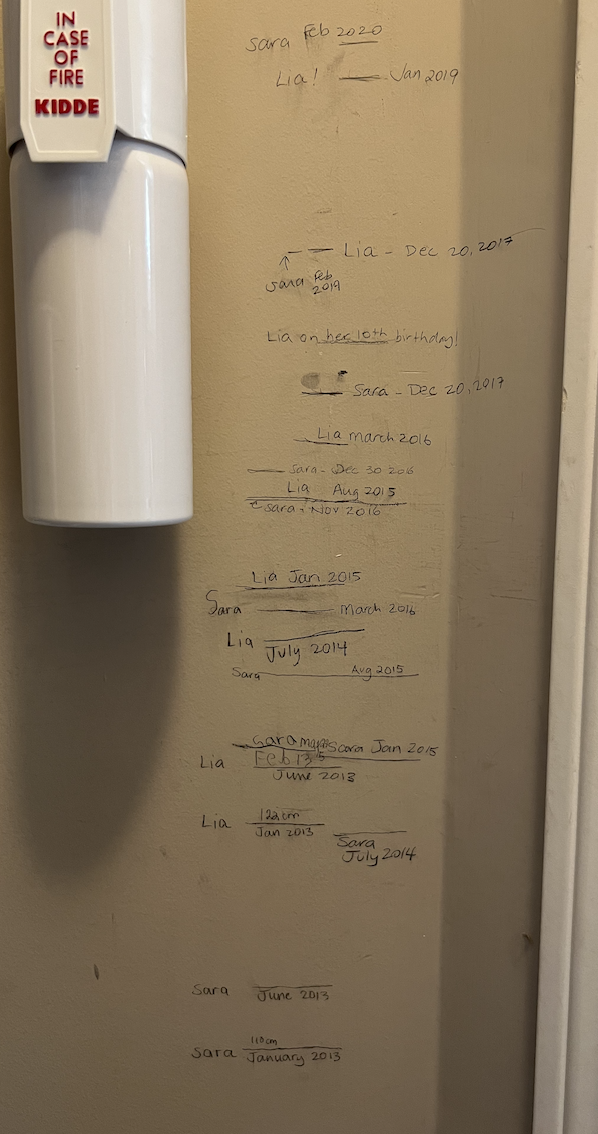 IN
CASE
OF
FIRE
KIDDE
Sara Feb 2020
Lia! Jan 2019
Lia - Dec 20, 2017
Sara Feb
2019
Lia on her 10th birthday!
Sara - Dec 20, 2017
Lia march 2016
Sara - Dec 30 2016
Lia Aug 2015
Sara - Nov 2016
Lia Jan 2015
Sara March 2016
Lia
July 2014
Sara Aug 2015
Sara Sara Jan 2015
Lia Feb 13
June 2013
122cm
Lia Jan 2013
Sara
July 2014
Sara June 2013
110cm
Sara January 2013